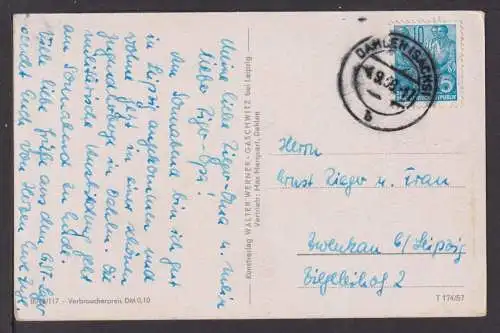 Meine liebe Zieger-Oma u. mein
lieber Zieger-Opi!
Am Sonnabend bin ich gut
in Leipzig angekommen und
wohne jetzt in einer schönen
Jugendherberge in Dahlen. Die
militärische Ausbildung geht
am Sonnabend zu Ende.
Viele liebe Grüße aus dem GST-Lager
sendet Euch von Herzen Eure
Kunstverlag WALTER WERNER · GASCHWITZ bei Leipzig
Vertrieb: Max Marquart, Dahlen
117 - Verbraucherpreis DM 0,10
DAHLEN (SACHS)
b
10
Herrn
Ernst Zieger u. Frau
Zwenkau b/Leipzig
Ziegeleihof 2
T 174/57